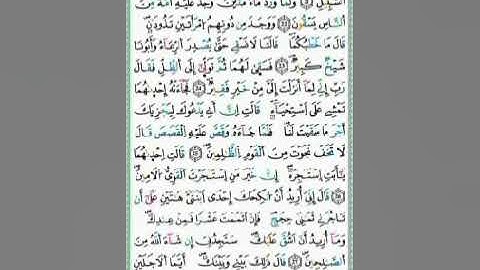 السَّبِيلِ ﴿٢٢﴾ وَلَمَّا وَرَدَ مَاءَ مَدْيَنَ وَجَدَ عَلَيْهِ أُمَّةً مِنَ
النَّاسِ يَسْقُونَ ۖ وَوَجَدَ مِنْ دُونِهِمُ امْرَأَتَيْنِ تَذُودَانِ ۖ
قَالَ مَا خَطْبُكُمَا ۖ قَالَتَا لَا نَسْقِي حَتَّىٰ يُصْدِرَ الرِّعَاءُ ۖ وَأَبُونَا
شَيْخٌ كَبِيرٌ ﴿٢٣﴾ فَسَقَىٰ لَهُمَا ثُمَّ تَوَلَّىٰ إِلَى الظِّلِّ فَقَالَ
رَبِّ إِنِّي لِمَا أَنْزَلْتَ إِلَيَّ مِنْ خَيْرٍ فَقِيرٌ ﴿٢٤﴾ فَجَاءَتْهُ إِحْدَىٰهُمَا
تَمْشِي عَلَى اسْتِحْيَاءٍ ۖ قَالَتْ إِنَّ أَبِي يَدْعُوكَ لِيَجْزِيَكَ
أَجْرَ مَا سَقَيْتَ لَنَا ۚ فَلَمَّا جَاءَهُ وَقَصَّ عَلَيْهِ الْقَصَصَ قَالَ
لَا تَخَفْ ۖ نَجَوْتَ مِنَ الْقَوْمِ الظَّٰلِمِينَ ﴿٢٥﴾ قَالَتْ إِحْدَىٰهُمَا
يَٰأَبَتِ اسْتَجِرْهُ ۖ إِنَّ خَيْرَ مَنِ اسْتَجَرْتَ الْقَوِيُّ الْأَمِينُ ﴿٢٦﴾
قَالَ إِنِّي أُرِيدُ أَنْ أُنْكِحَكَ إِحْدَى ابْنَتَيَّ هَٰتَيْنِ عَلَىٰ أَنْ
تَأْجُرَنِي ثَمَٰنِيَ حِجَجٍ ۖ فَإِنْ أَتْمَمْتَ عَشْرًا فَمِنْ عِنْدِكَ ۖ
وَمَا أُرِيدُ أَنْ أَشُقَّ عَلَيْكَ ۚ سَتَجِدُنِي إِنْ شَاءَ اللَّهُ مِنَ
الصَّٰلِحِينَ ﴿٢٧﴾ قَالَ ذَٰلِكَ بَيْنِي وَبَيْنَكَ ۖ أَيَّمَا الْأَجَلَيْنِ